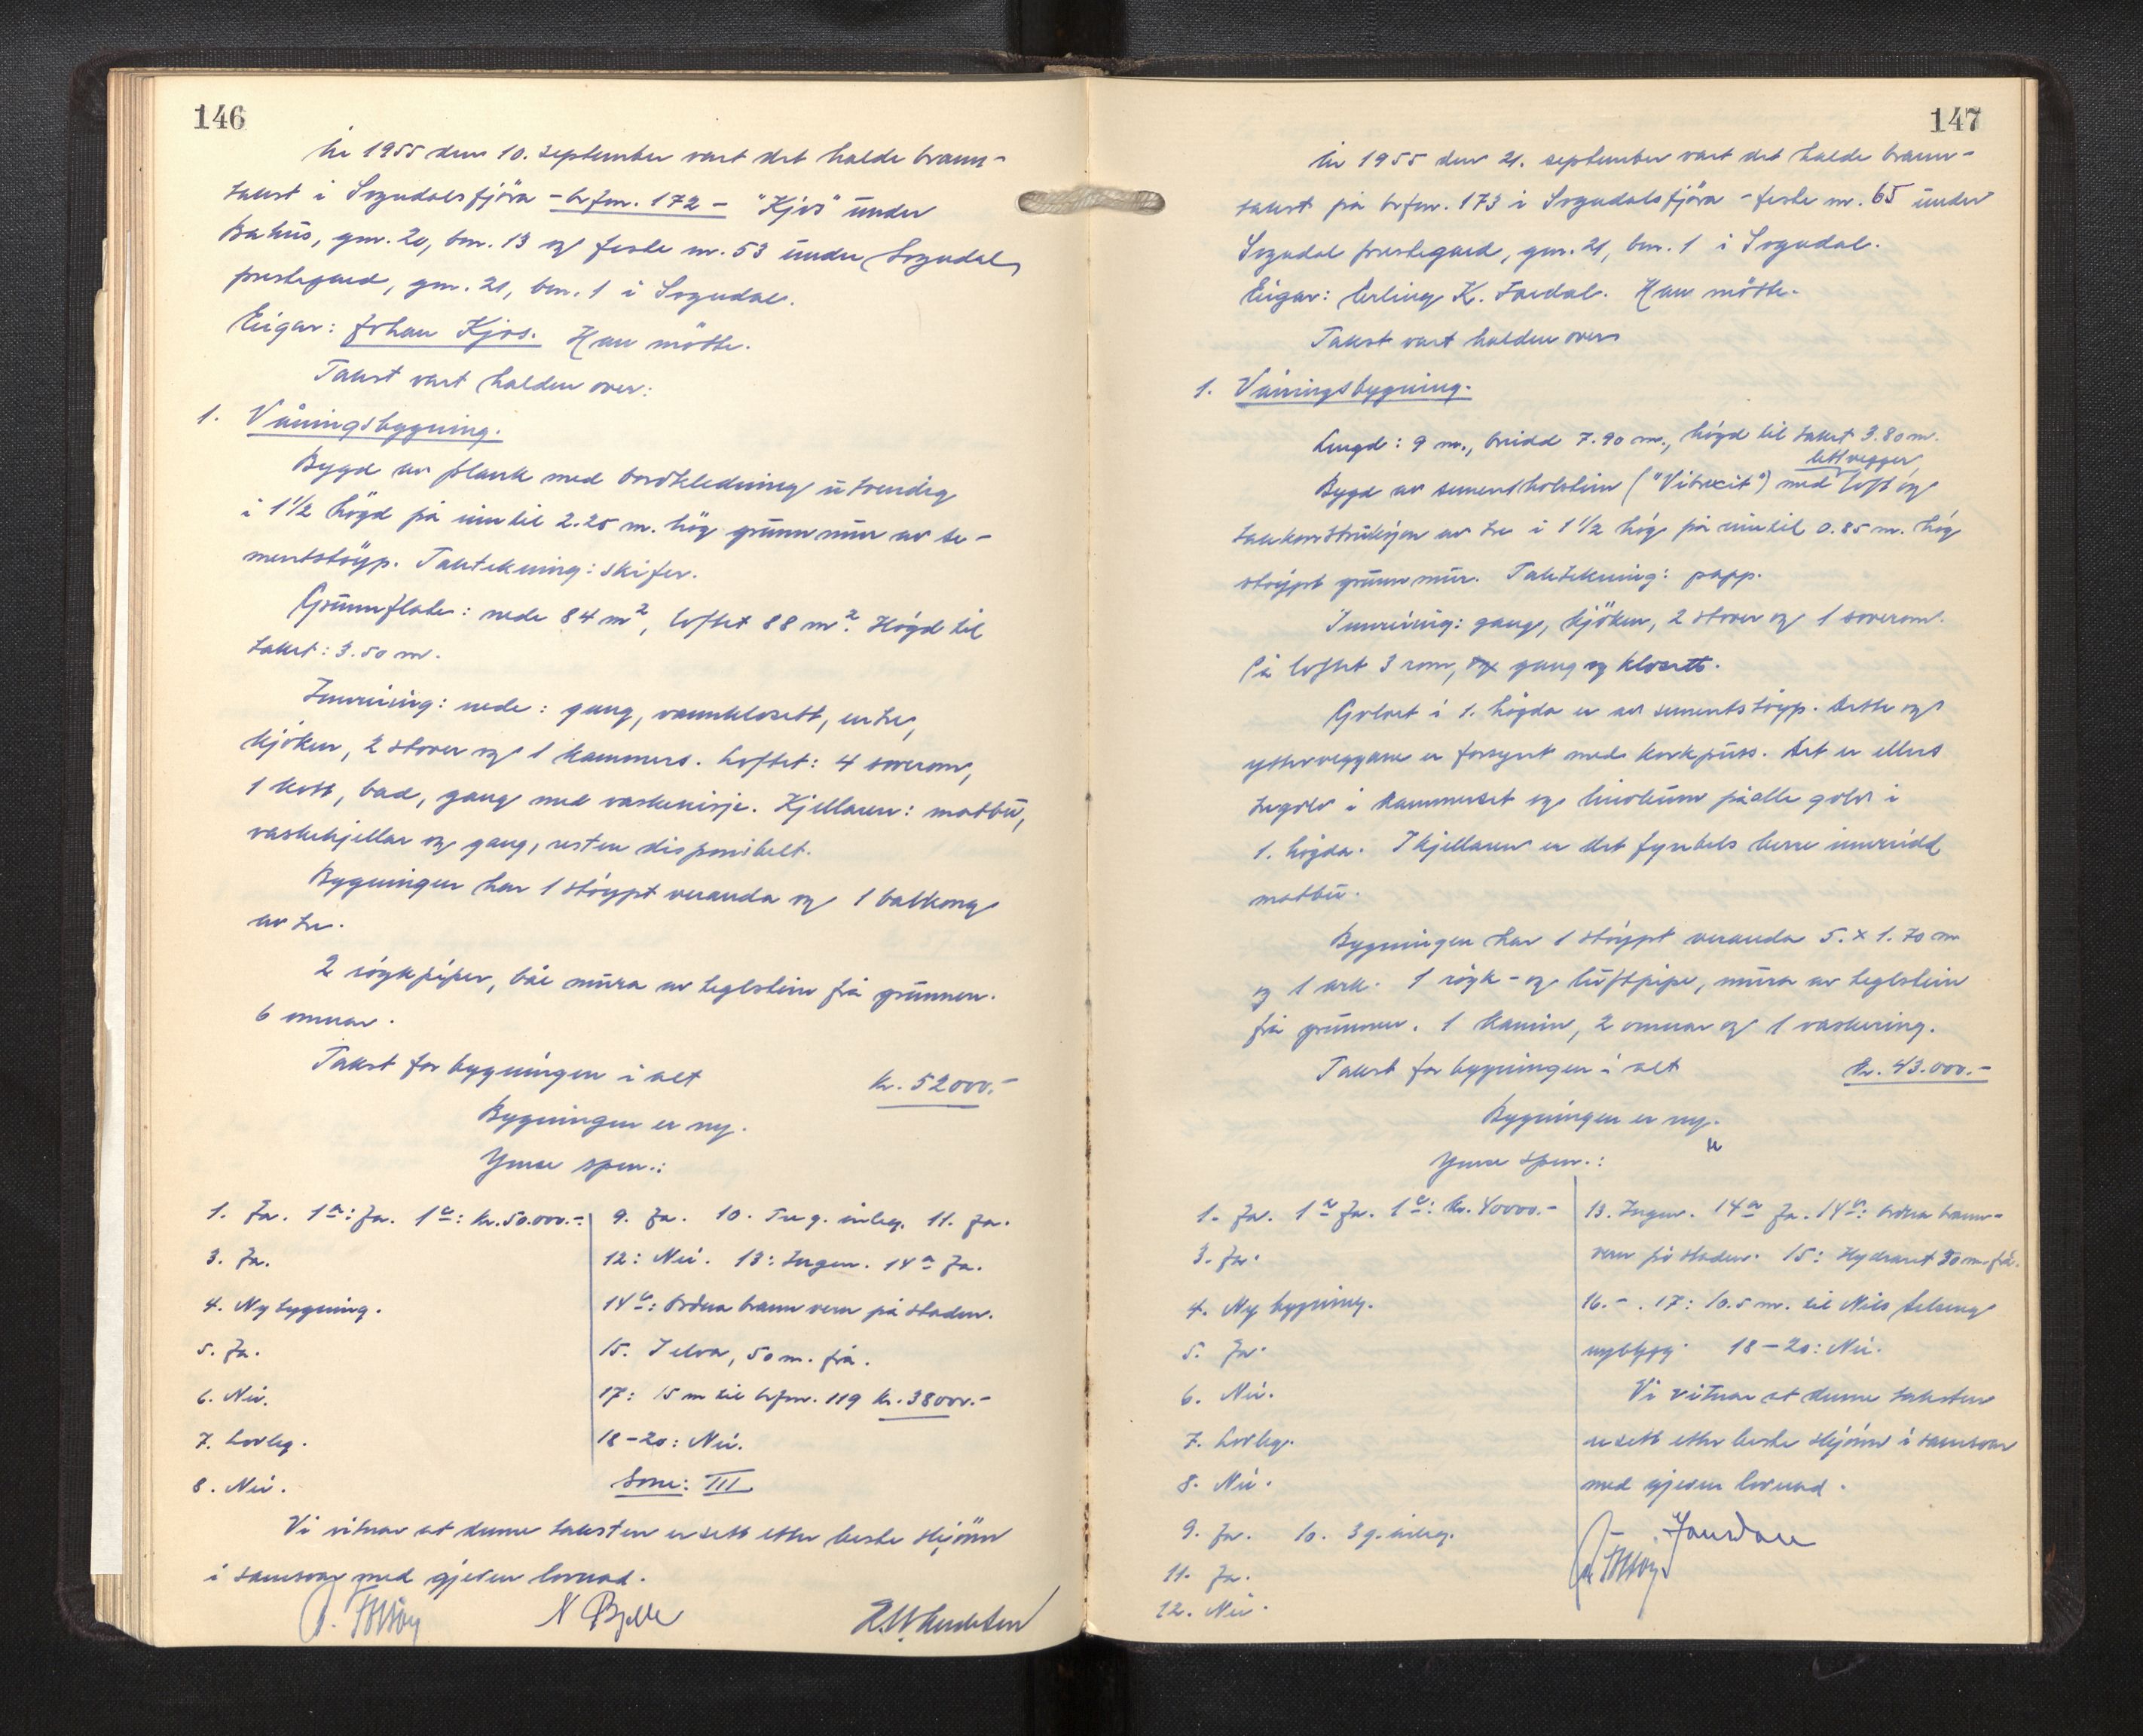 146
År 1955 den 10. september vart det halde brann-
takst i Sogndalsfjöra - brfnr. 172 - "Kjos" under
Bahus, gnr. 20, bnr. 13 og feste nr. 53 under Sogndal
prestegard, gnr. 21, bnr. 1 i Sogndal.
Eigar: Johan Kjos. Han mötte.
Takst vart halden over:
1. Våningsbygning.
Bygd av plank med bordkledning utvendig
i 1½ högd på inntil 2.25 m. hög grunnmur av se-
mentstöyp. Taktekning: skifer.
Grunnflate: nede 84 m², loftet 88 m². Högd til
taket: 3.50 m.
Innreiing: nede: gang, vannklosett, entre,
kjöken, 2 stover og 1 kammers. Loftet: 4 soverom,
1 kott, bad, gang med vaskenisje. Kjellaren: matbu,
vaskekjellar og gang, resten disponibelt.
Bygningen har 1 stöypt veranda og 1 balkong
av tre.
2 röykpiper, båe mura av teglstein frå grunnen.
6 omnar.
Takst for bygningen i alt kr. 52000.-
Bygningen er ny.
Ymse spm.:
1. Ja. 1a: Ja. 1c: kr. 50.000.-
3. Ja.
4. Ny bygning.
5. Ja.
6. Nei.
7. Lovleg.
8. Nei.
9. Ja. 10. Tre g. innleg. 11. Ja.
12: Nei. 13: Ingen. 14a Ja.
14c: Ordna brannvern på staden.
15. I elva, 50 m. frå.
17: 15 m til brfnr. 119 kr. 38000.-
18-20: Nei.
Sone: III
Vi vitnar at denne taksten er sett etter beste skjönn
i samsvar med gjeven lovnad.
147
År 1955 den 21. september vart det halde brann-
takst på brfnr. 173 i Sogndalsfjöra - feste nr. 65 under
Sogndal prestegard, gnr. 21, bnr. 1 i Sogndal.
Eigar: Erling K. Fardal. Han mötte.
Takst vart halden over
1. Våningsbygning.
Lengd: 9 m., breidd 7.90 m., högd til taket 3.80 m.
lettvegger,
Bygd av sementholstein ("Vibrexit") med loft og
takkonstruksjon av tre i 1½ hög på inntil 0.85 m. hög
stöypt grunnmur. Taktekning: papp.
Innreiing: gang, kjöken, 2 stover og 1 soverom.
På loftet 3 rom, gang og klosett.
Golvet i 1. högda er av sementstöyp. Dette og
ytterveggane er forsynt med korkpuss. Det er ellers
tregolv i kammerset og linoleum på alle golv i
1. högda. I kjellaren er det fyrebels berre innreidd
matbu.
Bygningen har 1 stöypt veranda 5. x 1.70 m
og 1 ark. 1 röyk- og luftpipe, mura av teglstein
frå grunnen. 1 kamin, 2 omnar og 1 vaskering.
Takst for bygningen i alt kr. 43.000.-
Bygningen er ny.
Ymse spm.:
1. Ja. 1a Ja. 1c: kr. 40000.-
3. Ja.
4. Ny bygning.
5. Ja.
6. Nei.
7. Lovleg.
8. Nei.
9. Ja. 10. 3 g. innleg.
11. Ja.
12. Nei.
13. Ingen. 14a Ja. 14c: Ordna brann-
vern på staden. 15: Hydrant 30 m. frå.
16. - . 17: 10.5 m. til Nils
nybygg. 18-20: Nei.
Vi vitnar at denne taksten
er sett etter beste skjönn i samsvar
med gjeven lovnad.